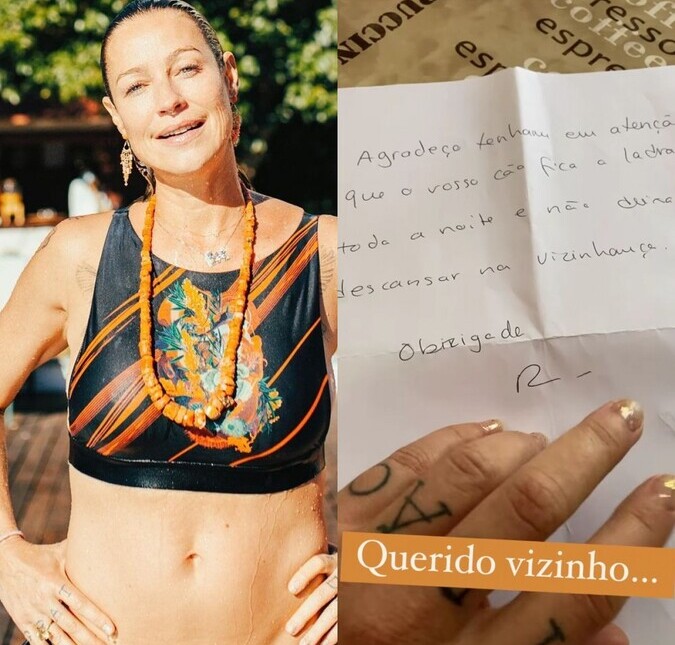 PUCCIN
resso
coffee
espre
Agradeço tenham em atençã
que o vosso cão fica a ladra
toda a noite e não deixa
descansar na vizinhança.
Obrigade
R -
Querido vizinho...